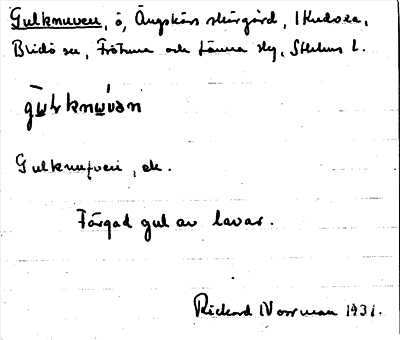 Gulknuven, ö, Ängskärs skärgård, i Kudoxa,
Blidö sn, Fröhuna och Länna slg, Sthlms l.
gu̲lknu̲vən
Gulknufven, ek.
Färgad gul av lavar.
Rickard Norrman 1931.